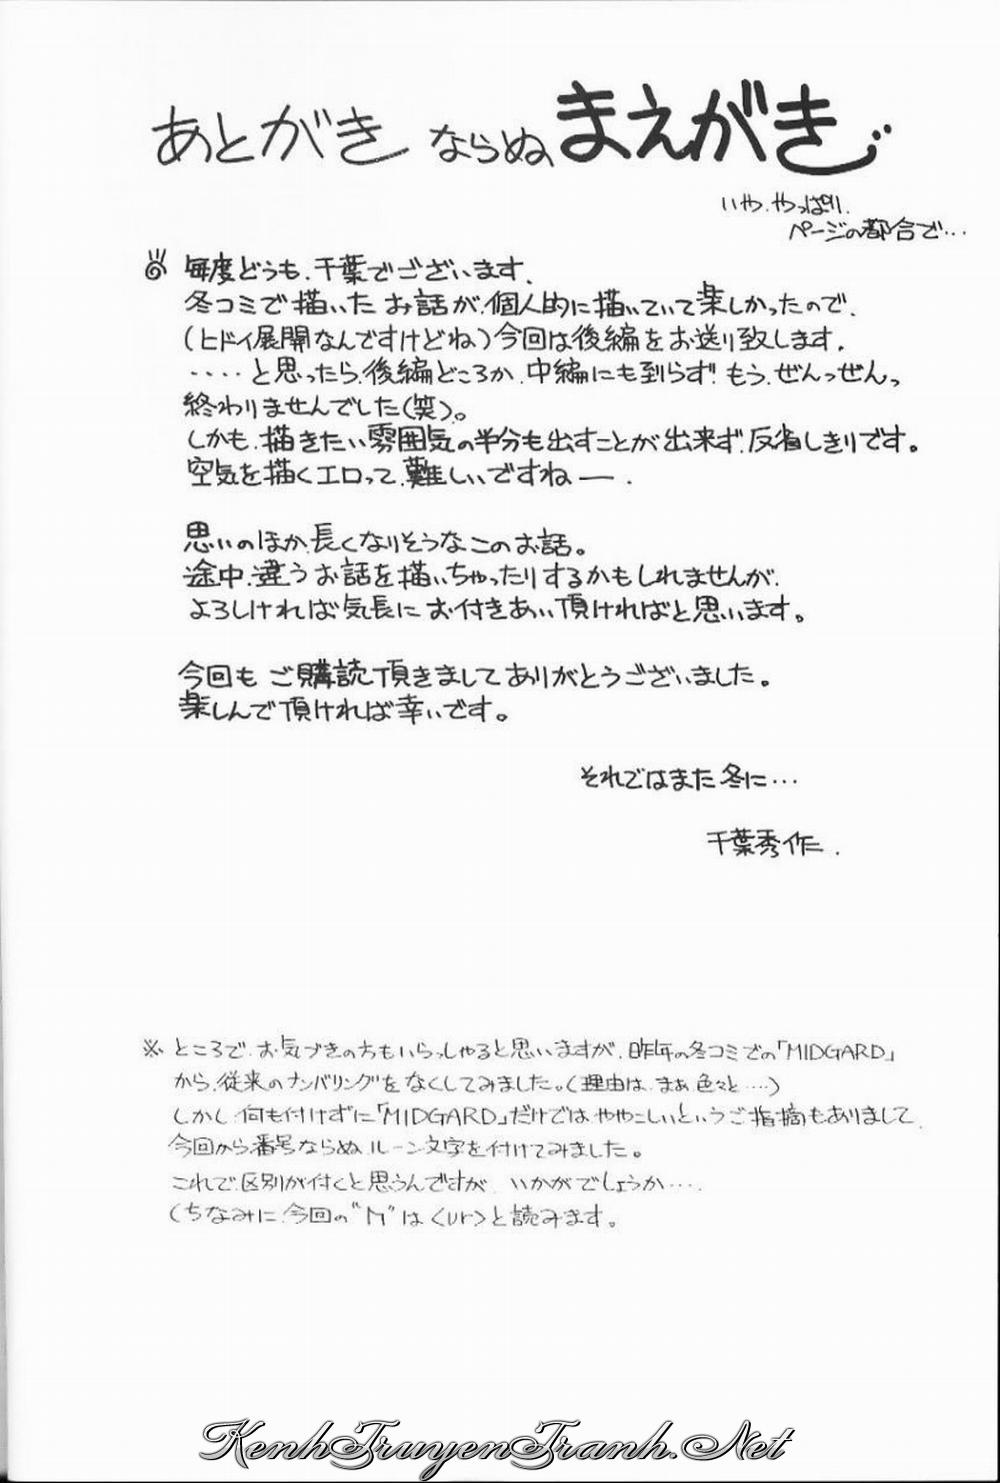 あとがきならぬまえがき
いや、やっぱり、
ページの都合で…
毎度どうも、千葉でございます。
冬コミで描いたお話が、個人的に描いていて楽しかったので、
(ヒドイ展開なんですけどね)今回は後編をお送り致します。
‥‥と思ったら、後編どころか、中編にも到らず、もう、ぜんっぜんっ
終わりませんでした(笑)。
しかも、描きたい雰囲気の半分も出すことが出来ず、反省しきりです。
空気を描くエロって、難しいですねー。
思いのほか、長くなりそうなこのお話。
途中、違うお話を描いちゃったりするかもしれませんが、
よろしければ気長にお付きあい頂ければと思います。
今回もご購読頂きましてありがとうございました。
楽しんで頂ければ幸いです。
それではまた冬に…
千葉秀作.
※ ところで、お気づきの方もいらっしゃると思いますが、昨年の冬コミでの「MIDGARD」
から、従来のナンバリングをなくしてみました。(理由は、まぁ色々と‥‥)
しかし、何も付けずに「MIDGARD」だけではややこしいというご指摘もありまして、
今回から番号ならぬ、ルーン文字を付けてみました。
これで、区別が付くと思うんですが、いかがでしょうか‥‥.
(ちなみに、今回の"ᚢ"は<ur>と読みます。
KenhTruyenTranh.Net